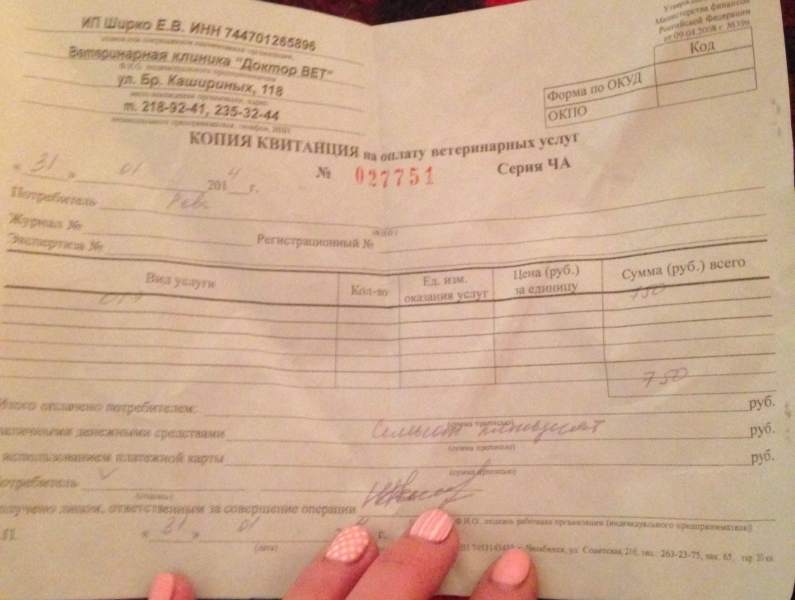 ИП Ширко Е.В. ИНН 744701265896
Ветеринарная клиника "Доктор ВЕТ"
ул. Бр. Кашириных, 118
т. 218-92-41, 235-32-44
Министерства финансов
Российской Федерации
Код
Форма по ОКУД
ОКПО
КОПИЯ КВИТАНЦИЯ на оплату ветеринарных услуг
« 31 » 01 2014 г. № 027751 Серия ЧА
Потребитель
Журнал №
Экспертиза № Регистрационный №
Вид услуги Кол-во Ед. изм. оказания услуг Цена (руб.) за единицу Сумма (руб.) всего
750
750
Итого оплачено потребителем: руб.
наличными денежными средствами семьсот пятьдесят руб.
(сумма прописью)
использованием платежной карты руб.
(сумма прописью)
Потребитель
(подпись)
Получено лицом, ответственным за совершение операции
Ф.И.О. подпись работника организации (индивидуального предпринимателя)
« 31 » 01 г.
(дата)
г. Челябинск, ул. Советская, 216, тел.: 263-23-75, зак. 65,